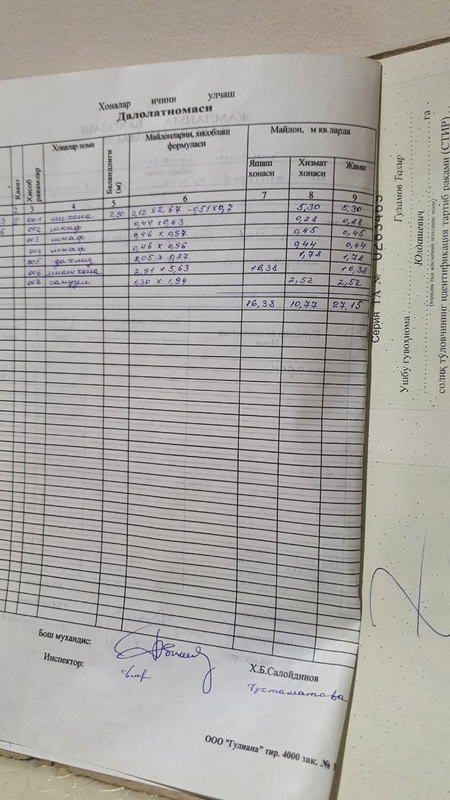 Хоналар ичини улчаш
Далолатномаси
Кават
Хисоб ракамлар
Хоналар номи
Баландлиги (м)
Майдонларни, хисоблаш формуласи
Майдон, м кв ларда
Яшаш хонаси
Хизмат хонаси
Жами
3 4 5 6 7 8 9
001 ошхона 2,90 2,12 x 2,67 - 0,51 x 0,7 5,30 5,30
002 шкаф 0,44 x 0,63 0,28 0,28
003 шкаф 0,46 x 0,97 0,45 0,45
шкаф 0,46 x 0,96 0,44 0,44
005 2,05 x 0,87 1,78 1,78
006 2,91 x 5,63 16,38 16,38
007 санузел 1,30 x 1,94 2,52 2,52
16,38 10,77 27,15
Бош мухандис:
Х.Б.Салойдинов
Инспектор:
Тухтаматова
ООО "Гулиана" тир. 4000 зак. №
Серия ГА №
Ушбу гувоҳнома
Гуламов Тахир
Юлдашевич
га
солиқ тўловчининг идентификация тартиб рақами (СТИР)